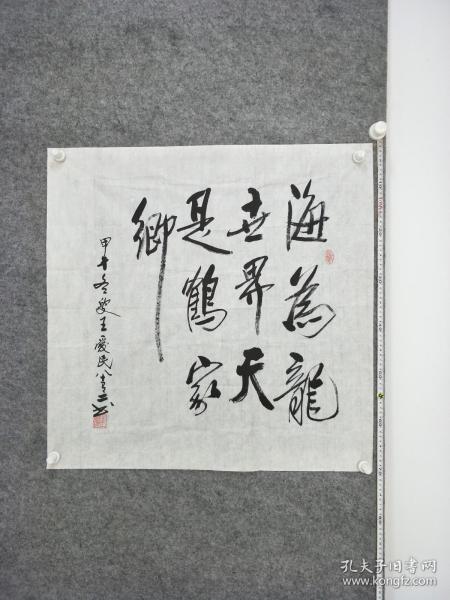 海为龍
世界天
是鶴家
鄉
甲午冬叟王爱民八十二书
孔夫子旧书网
www.kongfz.com